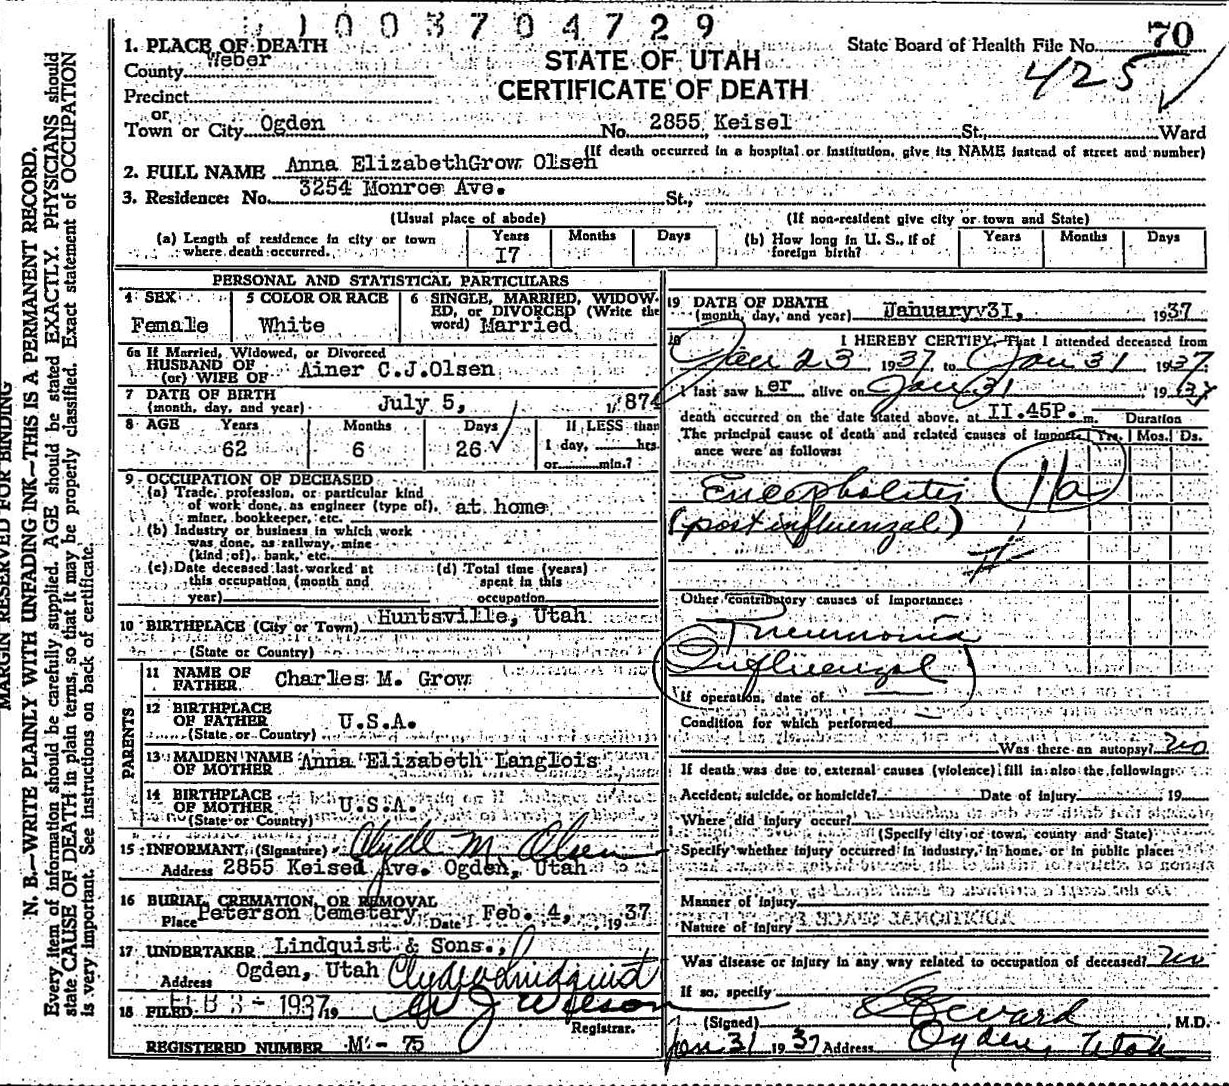 1003704729
1. PLACE OF DEATH
County Weber
Precinct
or
Town or City Ogden No. 2855 Keisel St., Ward
STATE OF UTAH
CERTIFICATE OF DEATH
State Board of Health File No. 70
425
(If death occurred in a hospital or institution, give its NAME instead of street and number)
2. FULL NAME Anna ElizabethGrow Olsen
3. Residence: No. 3254 Monroe Ave. St.,
(Usual place of abode) (If non-resident give city or town and State)
(a) Length of residence in city or town where death occurred. Years I7 Months Days
(b) How long in U. S., if of foreign birth? Years Months Days
PERSONAL AND STATISTICAL PARTICULARS
4 SEX Female
5 COLOR OR RACE White
6 SINGLE, MARRIED, WIDOW-
ED, or DIVORCED (Write the
word) Married
6a If Married, Widowed, or Divorced
HUSBAND OF
(or) WIFE OF Ainer C.J.Olsen
7 DATE OF BIRTH
(month, day, and year) July 5, 1/874
8 AGE Years 62 Months 6 Days 26 If LESS than
1 day, hrs.
or min.?
9 OCCUPATION OF DECEASED
(a) Trade, profession, or particular kind
of work done, as engineer (type of), at home
miner, bookkeeper, etc.
(b) Industry or business in which work
was done, as railway, mine
(kind of), bank, etc.
(c) Date deceased last worked at
this occupation (month and
year)
(d) Total time (years)
spent in this
occupation
10 BIRTHPLACE (City or Town) Huntsville, Utah
(State or Country)
PARENTS
11 NAME OF
FATHER Charles M. Grow
12 BIRTHPLACE
OF FATHER U.S.A.
(State or Country)
13 MAIDEN NAME
OF MOTHER Anna Elizabeth Langlois
14 BIRTHPLACE
OF MOTHER U.S.A.
(State or Country)
15 INFORMANT (Signature) Clyde M Olsen
Address 2855 Keised Ave. Ogden, Utah
16 BURIAL, CREMATION, OR REMOVAL
Place Peterson Cemetery Date Feb. 4, 1937
17 UNDERTAKER Lindquist & Sons.,
Address Ogden, Utah Clyde Lindquist
18 FILED FEB 3 - 1937 19
Registrar.
REGISTERED NUMBER M - 75
19 DATE OF DEATH
(month, day, and year) Januaryv3I, 1937
I HEREBY CERTIFY, That I attended deceased from
Jan 23 1937 to Jan 31 1937
I last saw her alive on Jan 31 1937
death occurred on the date stated above, at II.45P. m. Duration
The principal cause of death and related causes of import-
ance were as follows: Yrs. Mos. Ds.
Encephalitis 11a
(post influenzal)
Other contributory causes of importance:
Pneumonia
Influenzal
If operation, date of
Condition for which performed
Was there an autopsy? no
If death was due to external causes (violence) fill in also the following:
Accident, suicide, or homicide? Date of injury 19
Where did injury occur?
(Specify city or town, county and State)
Specify whether injury occurred in industry, in home, or in public place:
Manner of injury
Nature of injury
Was disease or injury in any way related to occupation of deceased? no
If so, specify
(Signed) M.D.
Jan 31 1937 Address Ogden, Utah
MARGIN RESERVED FOR BINDING
N. B.—WRITE PLAINLY WITH UNFADING INK—THIS IS A PERMANENT RECORD.
Every item of information should be carefully supplied. AGE should be stated EXACTLY. PHYSICIANS should
state CAUSE OF DEATH in plain terms, so that it may be properly classified. Exact statement of OCCUPATION
is very important. See instructions on back of certificate.